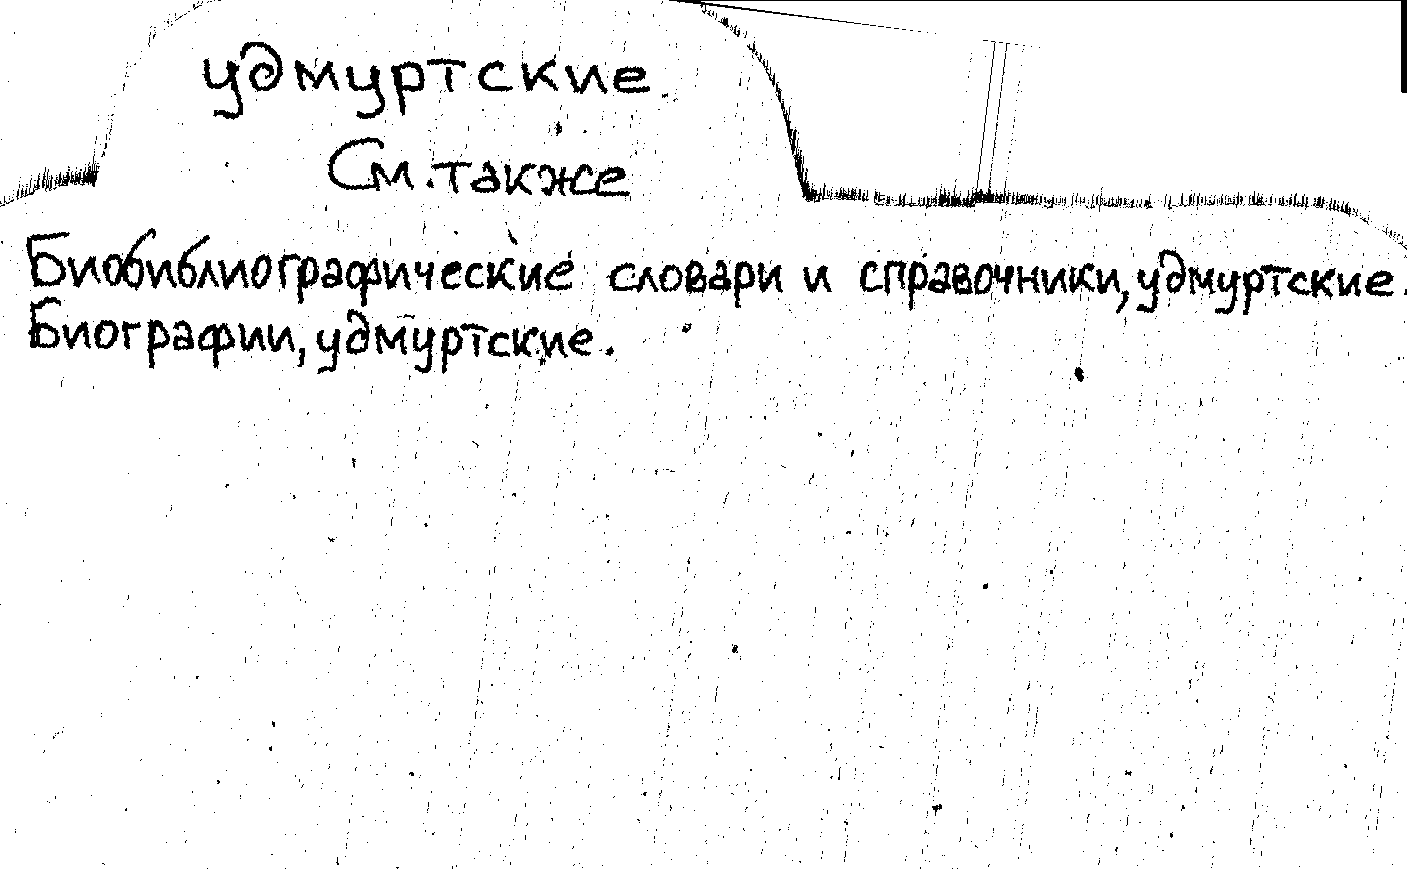 удмуртские.
См. также
Биобиблиографические словари и справочники, удмуртские.
Биографии, удмуртские.